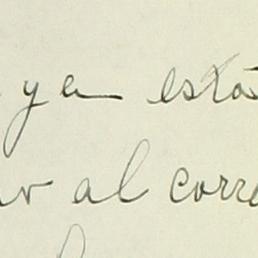 ya está
al corre